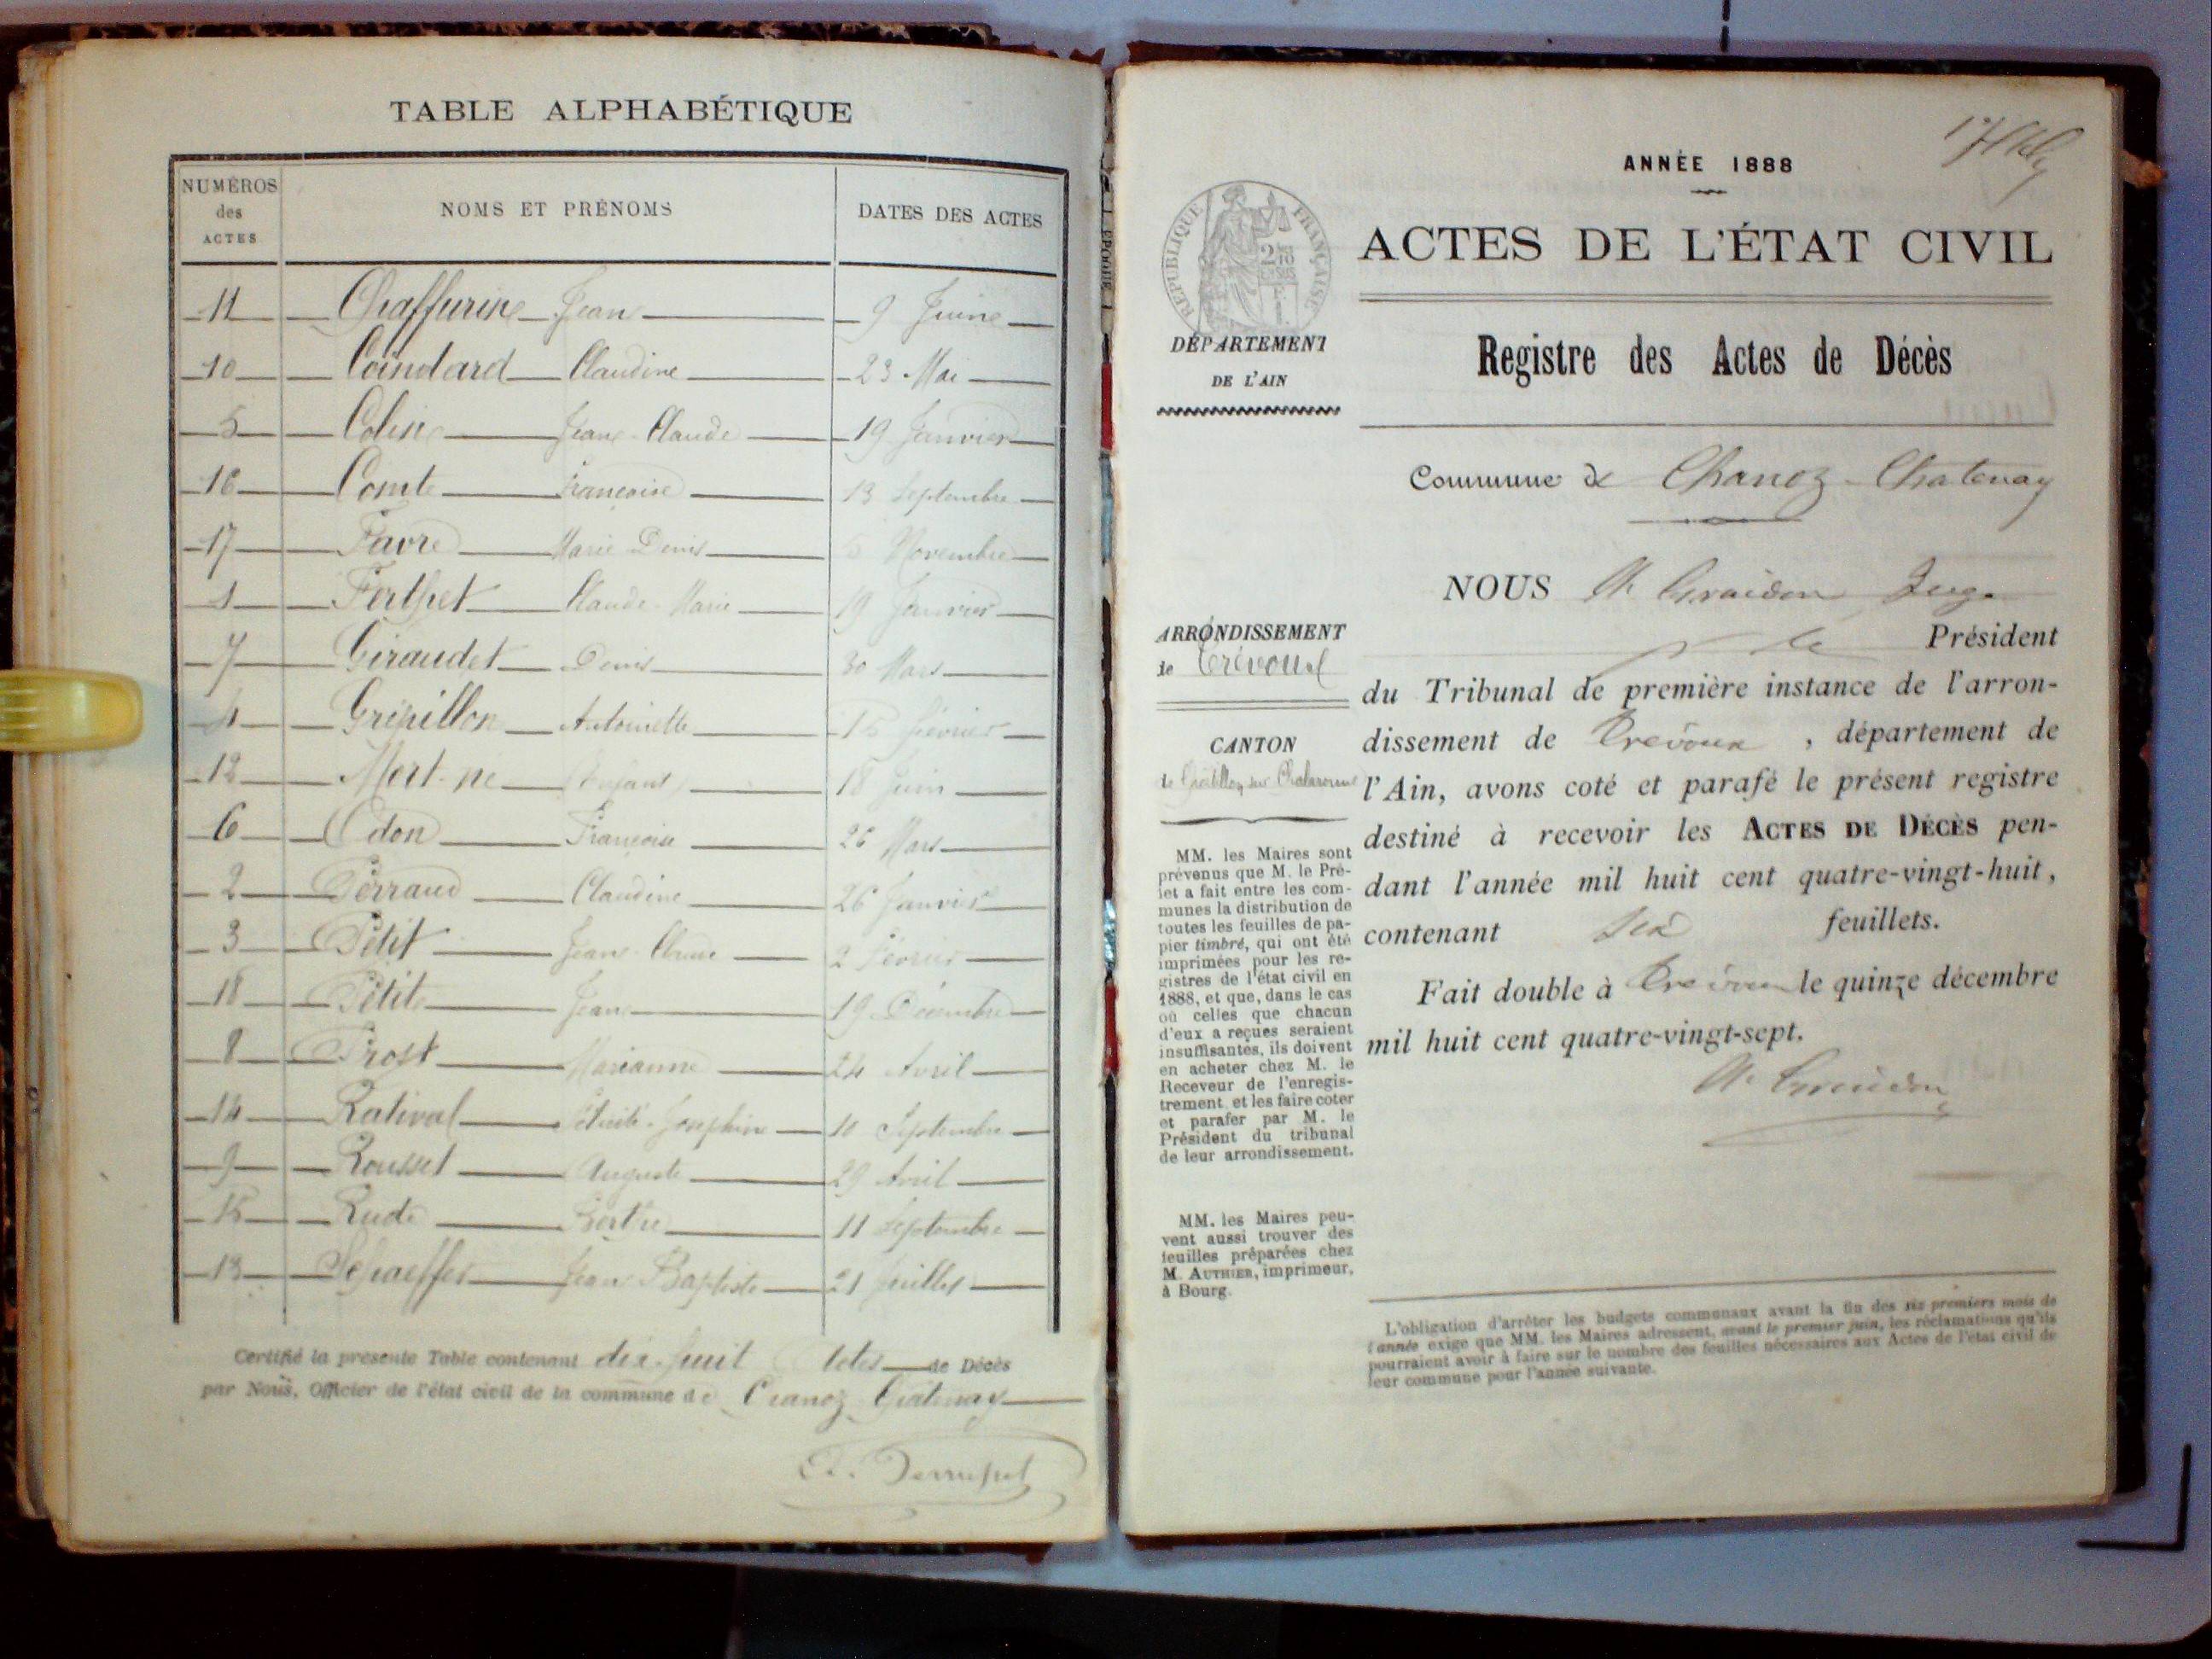 TABLE ALPHABÉTIQUE
NUMÉROS des ACTES NOMS ET PRÉNOMS DATES DES ACTES
11 Chaffurin Jean 9 Juin
10 Coindard Claudine 23 Mai
5 Colin Jean-Claude 19 Janvier
16 Comte Françoise 13 Septembre
17 Favre Marie Denis 5 Novembre
1 Claude-Marie 19 Janvier
7 Giraudet Denis 30 Mars
4 Grépillon Antoinette 15 Février
12 Mort-né (enfant) 18 Juin
6 Odon Françoise 26 Mars
2 Perraud Claudine 26 Janvier
3 Petit Jean-Claude 2 Février
18 Petit Jean 19 Décembre
8 Prost Marianne 24 Avril
14 Rativat Joséphine 10 Septembre
9 Rousset Auguste 29 Avril
15 Rude 11 Septembre
13 Schaeffer Jean Baptiste 21 Juillet
Certifié la présente Table contenant dix-huit Actes de Décès
par Nous, Officier de l'état civil de la commune de Chanoz Chatenay
ANNÉE 1888
RÉPUBLIQUE FRANÇAISE
ACTES DE L'ÉTAT CIVIL
DÉPARTEMENT
DE L'AIN
Registre des Actes de Décès
Commune de Chanoz-Chatenay
NOUS Juge
ARRONDISSEMENT
de Trévoux
Président
du Tribunal de première instance de l'arron-
dissement de Trévoux, département de
l'Ain, avons coté et parafé le présent registre
destiné à recevoir les ACTES DE DÉCÈS pen-
dant l'année mil huit cent quatre-vingt-huit,
contenant six feuillets.
Fait double à Trévoux le quinze décembre
mil huit cent quatre-vingt-sept.
CANTON
de Chatillon sur Chalaronne
MM. les Maires sont
prévenus que M. le Pré-
fet a fait entre les com-
munes la distribution de
toutes les feuilles de pa-
pier timbré, qui ont été
imprimées pour les re-
gistres de l'état civil en
1888, et que, dans le cas
où celles que chacun
d'eux a reçues seraient
insuffisantes, ils doivent
en acheter chez M. le
Receveur de l'enregis-
trement et les faire coter
et parafer par M. le
Président du tribunal
de leur arrondissement.
MM. les Maires peu-
vent aussi trouver des
feuilles préparées chez
M. AUTHIER, imprimeur,
à Bourg.
L'obligation d'arrêter les budgets communaux avant la fin des six premiers mois de
l'année exige que MM. les Maires adressent, avant le premier juin, les réclamations qu'ils
pourraient avoir à faire sur le nombre des feuilles nécessaires aux Actes de l'état civil de
leur commune pour l'année suivante.